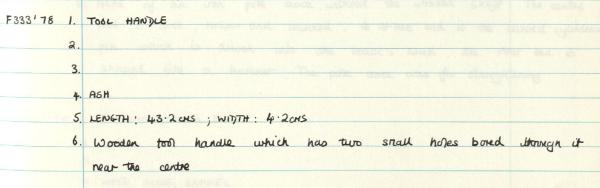 F333'78 1. TOOL HANDLE
2.
3.
4. ASH
5. LENGTH: 43.2 CMS ; WIDTH: 4.2 CMS
6. Wooden tool handle which has two small holes bored through it
near the centre